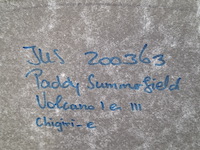 JUS 200363
Paddy Summerfield
Volcano 1e III
Chigiri-e